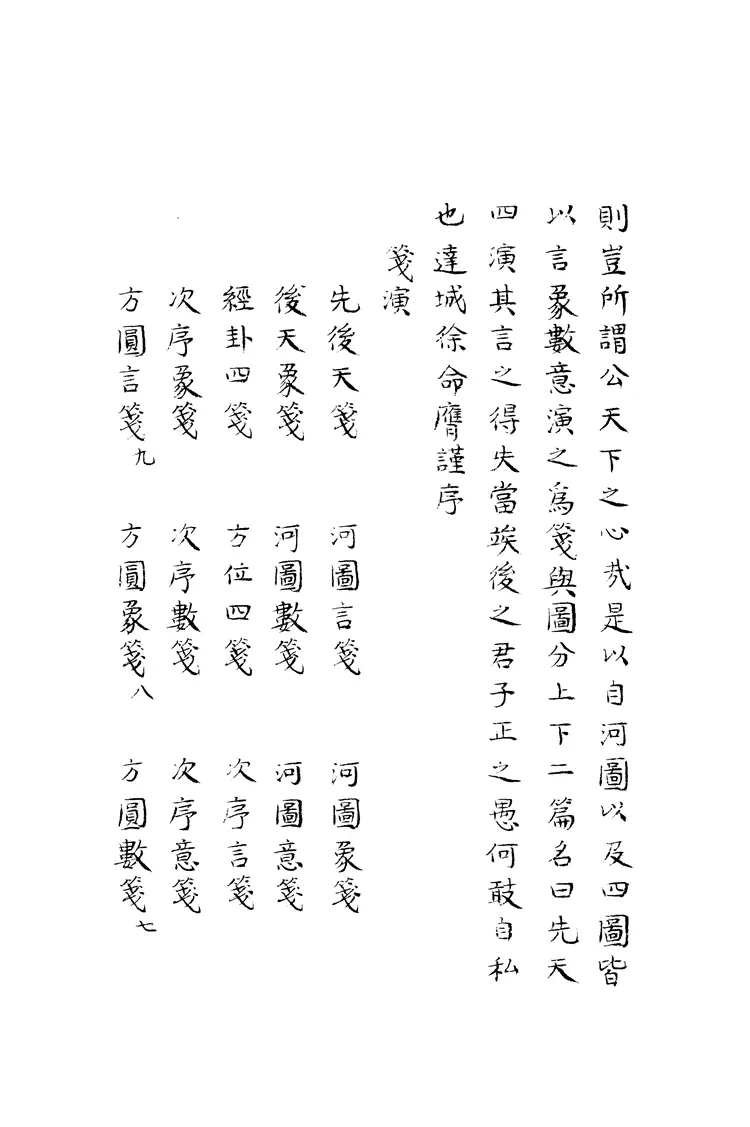 則豈所謂公天下之心哉是以自河圖以及四圖皆
以言象數意演之爲箋與圖分上下二篇名曰先天
四演其言之得失當竢後之君子正之愚何敢自私
也達城徐命膺謹序
箋演
先後天箋 河圖言箋 河圖象箋
後天象箋 河圖數箋 河圖意箋
經卦四箋 方位四箋 次序言箋
次序象箋 次序數箋 次序意箋
方圓言箋九 方圓象箋八 方圓數箋七